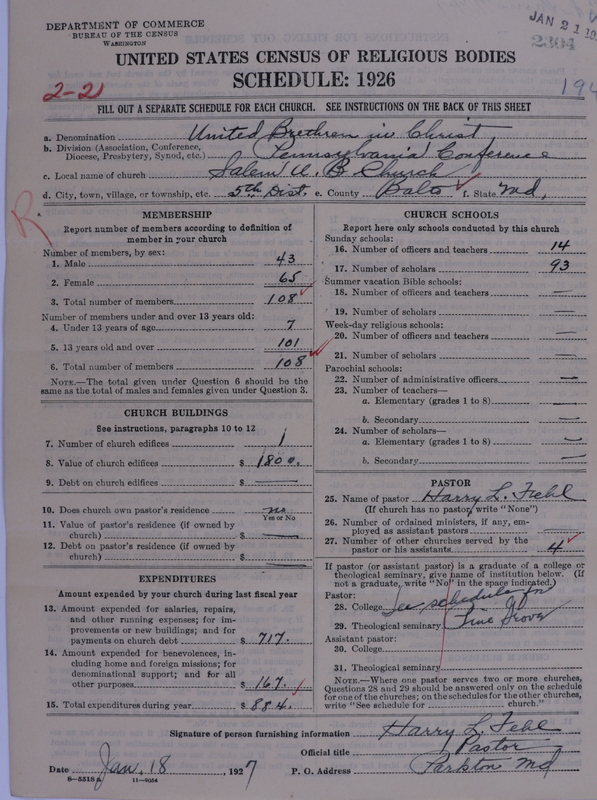 DEPARTMENT OF COMMERCE
BUREAU OF THE CENSUS
WASHINGTON
JAN 21 19
2304
UNITED STATES CENSUS OF RELIGIOUS BODIES
SCHEDULE: 1926
2-21
194
FILL OUT A SEPARATE SCHEDULE FOR EACH CHURCH. SEE INSTRUCTIONS ON THE BACK OF THIS SHEET
a. Denomination United Brethren in Christ
b. Division (Association, Conference,
Diocese, Presbytery, Synod, etc.) Pennsylvania Conference
c. Local name of church Salem U. B Church
d. City, town, village, or township, etc. 5th Dist. e. County Balto f. State Md,
R
MEMBERSHIP
Report number of members according to definition of
member in your church
Number of members, by sex:
1. Male 43
2. Female 65
3. Total number of members 108
Number of members under and over 13 years old:
4. Under 13 years of age 7
5. 13 years old and over 101
6. Total number of members 108
NOTE.—The total given under Question 6 should be the
same as the total of males and females given under Question 3.
CHURCH BUILDINGS
See instructions, paragraphs 10 to 12
7. Number of church edifices 1
8. Value of church edifices $ 1800.
9. Debt on church edifices $ —
10. Does church own pastor's residence no
Yes or No
11. Value of pastor's residence (if owned by
church) $ —
12. Debt on pastor's residence (if owned by
church) $ —
EXPENDITURES
Amount expended by your church during last fiscal year
13. Amount expended for salaries, repairs,
and other running expenses; for im-
provements or new buildings; and for
payments on church debt $ 717.
14. Amount expended for benevolences, in-
cluding home and foreign missions; for
denominational support; and for all
other purposes $ 167.
15. Total expenditures during year $ 884.
CHURCH SCHOOLS
Report here only schools conducted by this church
Sunday schools:
16. Number of officers and teachers 14
17. Number of scholars 93
Summer vacation Bible schools:
18. Number of officers and teachers —
19. Number of scholars —
Week-day religious schools:
20. Number of officers and teachers —
21. Number of scholars —
Parochial schools:
22. Number of administrative officers —
23. Number of teachers—
a. Elementary (grades 1 to 8) —
b. Secondary —
24. Number of scholars—
a. Elementary (grades 1 to 8) —
b. Secondary —
PASTOR
25. Name of pastor Harry L. Fehl
(If church has no pastor, write "None")
26. Number of ordained ministers, if any, em-
ployed as assistant pastors —
27. Number of other churches served by the
pastor or his assistants 4
If pastor (or assistant pastor) is a graduate of a college or
theological seminary, give name of institution below. (If
not a graduate, write "No" in the space indicated)
Pastor:
28. College See schedule for
29. Theological seminary Pine Grove
Assistant pastor:
30. College
31. Theological seminary
NOTE.—Where one pastor serves two or more churches,
Questions 28 and 29 should be answered only on the schedule
for one of the churches; on the schedules for the other churches,
write "See schedule for church."
Signature of person furnishing information Harry L. Fehl
Official title Pastor
Date Jan. 18, 1927 P. O. Address Parkton Md
8-5518a 11-9054